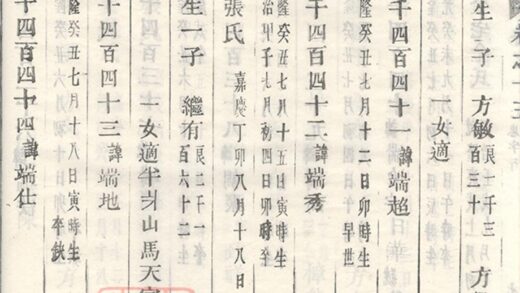 生一子 方敏 良一千三百三十 方
女適
千四百四十一 諱端超
隆癸丑七月十二日卯時生
早世
千四百四十二 諱端秀
隆癸丑七月十五日寅時生
治甲子七月初四日卯時卒
張氏 嘉慶丁卯八月十八日
生一子 繼有 良二千一百六十二
一女適半山馬天
千四百四十三 諱端地
隆癸丑七月十八日寅時生
卒缺
千四百四十四 諱端仕